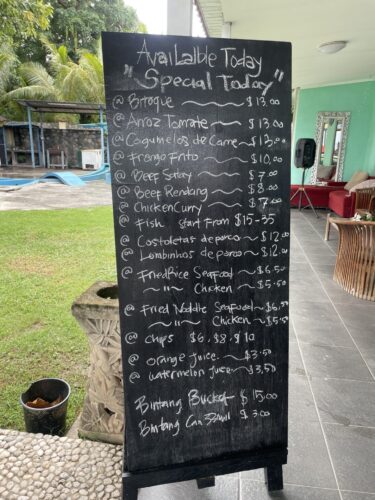 AvaiLalble Today
"Special Today"
@ Bitoque ~ $13.00
@ Arroz Tomate ~ $13.00
@ Cogumelos de Carne ~ $13.00
@ Frango Frito ~ $10.00
@ Beef Satay ~ $7.00
@ Beef Rendang ~ $8.00
@ Chicken Curry ~ $7.00
@ Fish start From $15-35
@ Costoletas de porco ~ $12.00
@ Lombinhos de porco ~ $12.00
@ Fried Rice Seafood ~ $6.50
~ " ~ Chicken ~ $5.50
@ Fried Noddle Seafood ~ $6.50
~ " ~ Chicken ~ $5.50
@ chips $6. $8. $10
@ orange Juice ~ $3.50
@ watermelon Juice ~ $3.50
Bintang Bucket $15.00
Bintang Can 330ml $3.00